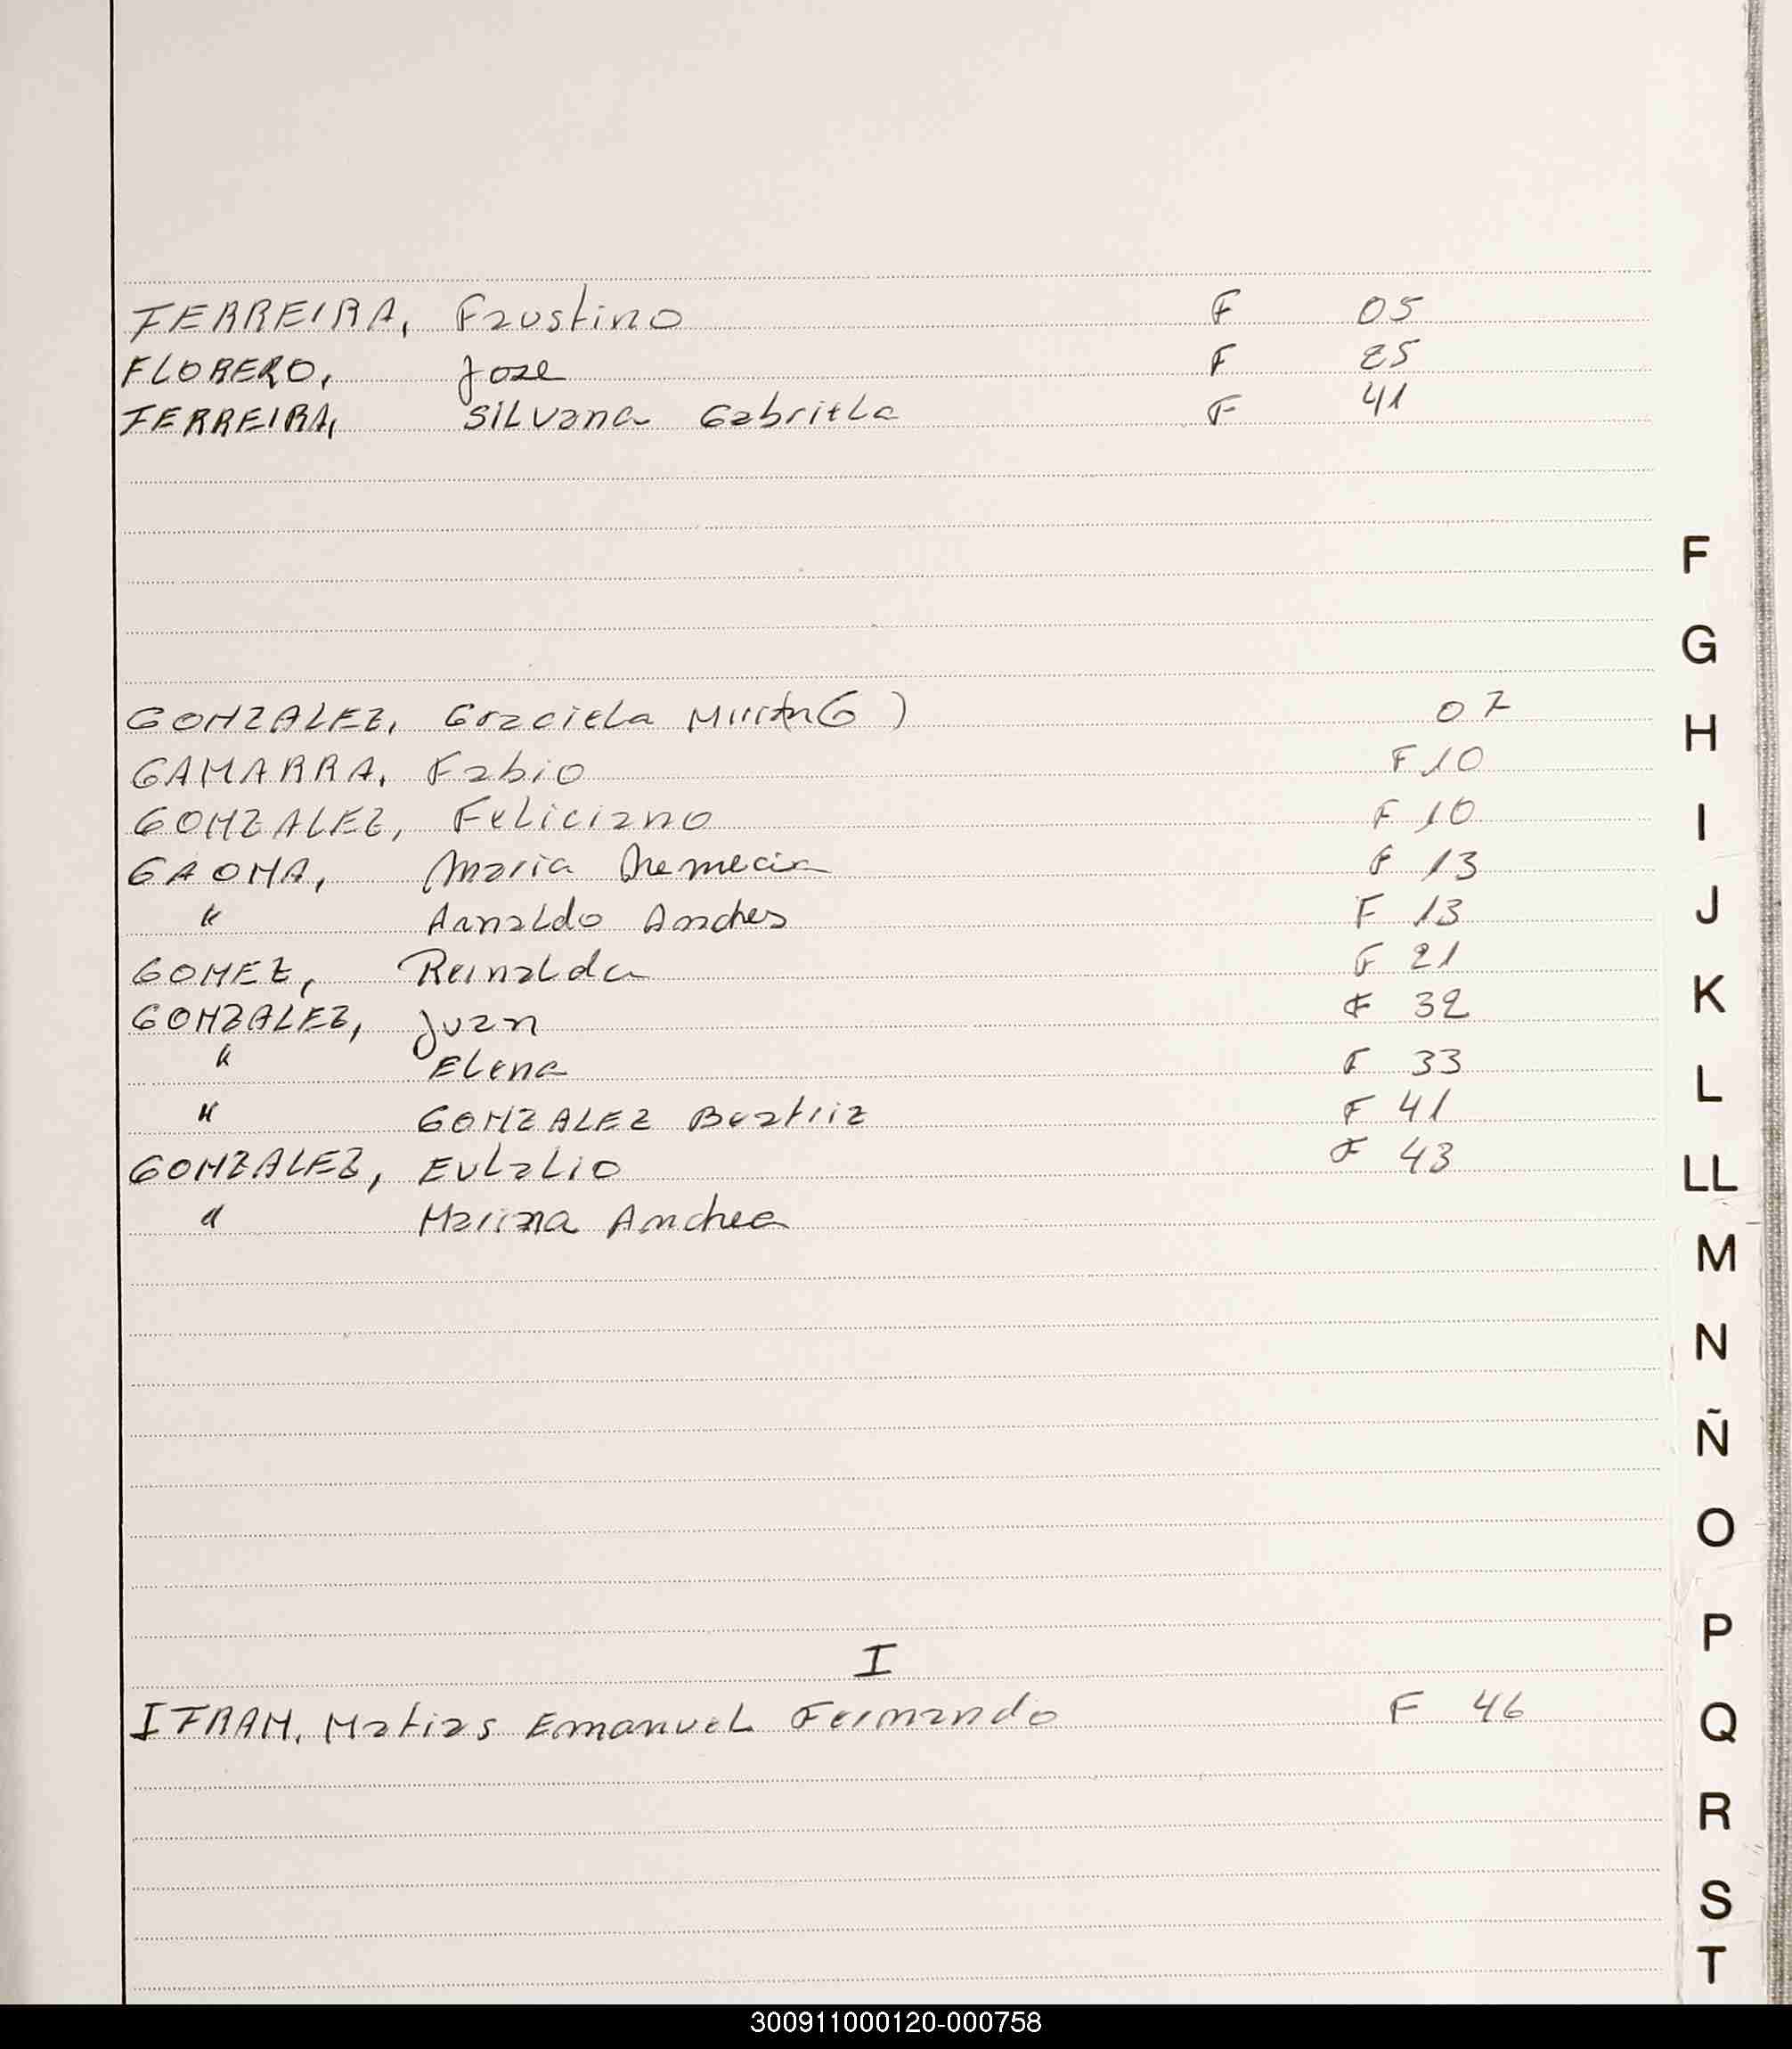 FERREIRA, Faustino F 05
FLORERO, Jose F 25
FERREIRA, Silvana Gabriela F 41
GONZALEZ, Graciela 07
GAMARRA, Fabio F 10
GONZALEZ, Feliciano F 10
GAONA, Maria F 13
" Arnaldo Andres F 13
GOMEZ, Reinalda F 21
GONZALEZ, Juan F 32
" Elena F 33
" GONZALEZ Beatriz F 41
GONZALEZ, Eulalio F 43
" Mariana Andrea
I
IFRAN, Matias Emanuel Fernando F 46
F
G
H
I
J
K
L
LL
M
N
Ñ
O
P
Q
R
S
T
300911000120-000758